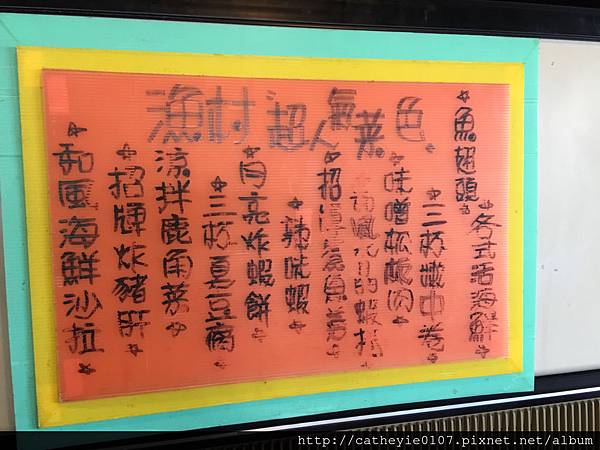 漁村超人氣菜色
魚翅頭
各式活海鮮
三杯嫩中卷
味噌松阪肉
辣味蝦
月亮炸蝦餅
三杯臭豆腐
涼拌鹿角菜
招牌炸豬肝
和風海鮮沙拉
http://catheyie0107.pixnet.net/album